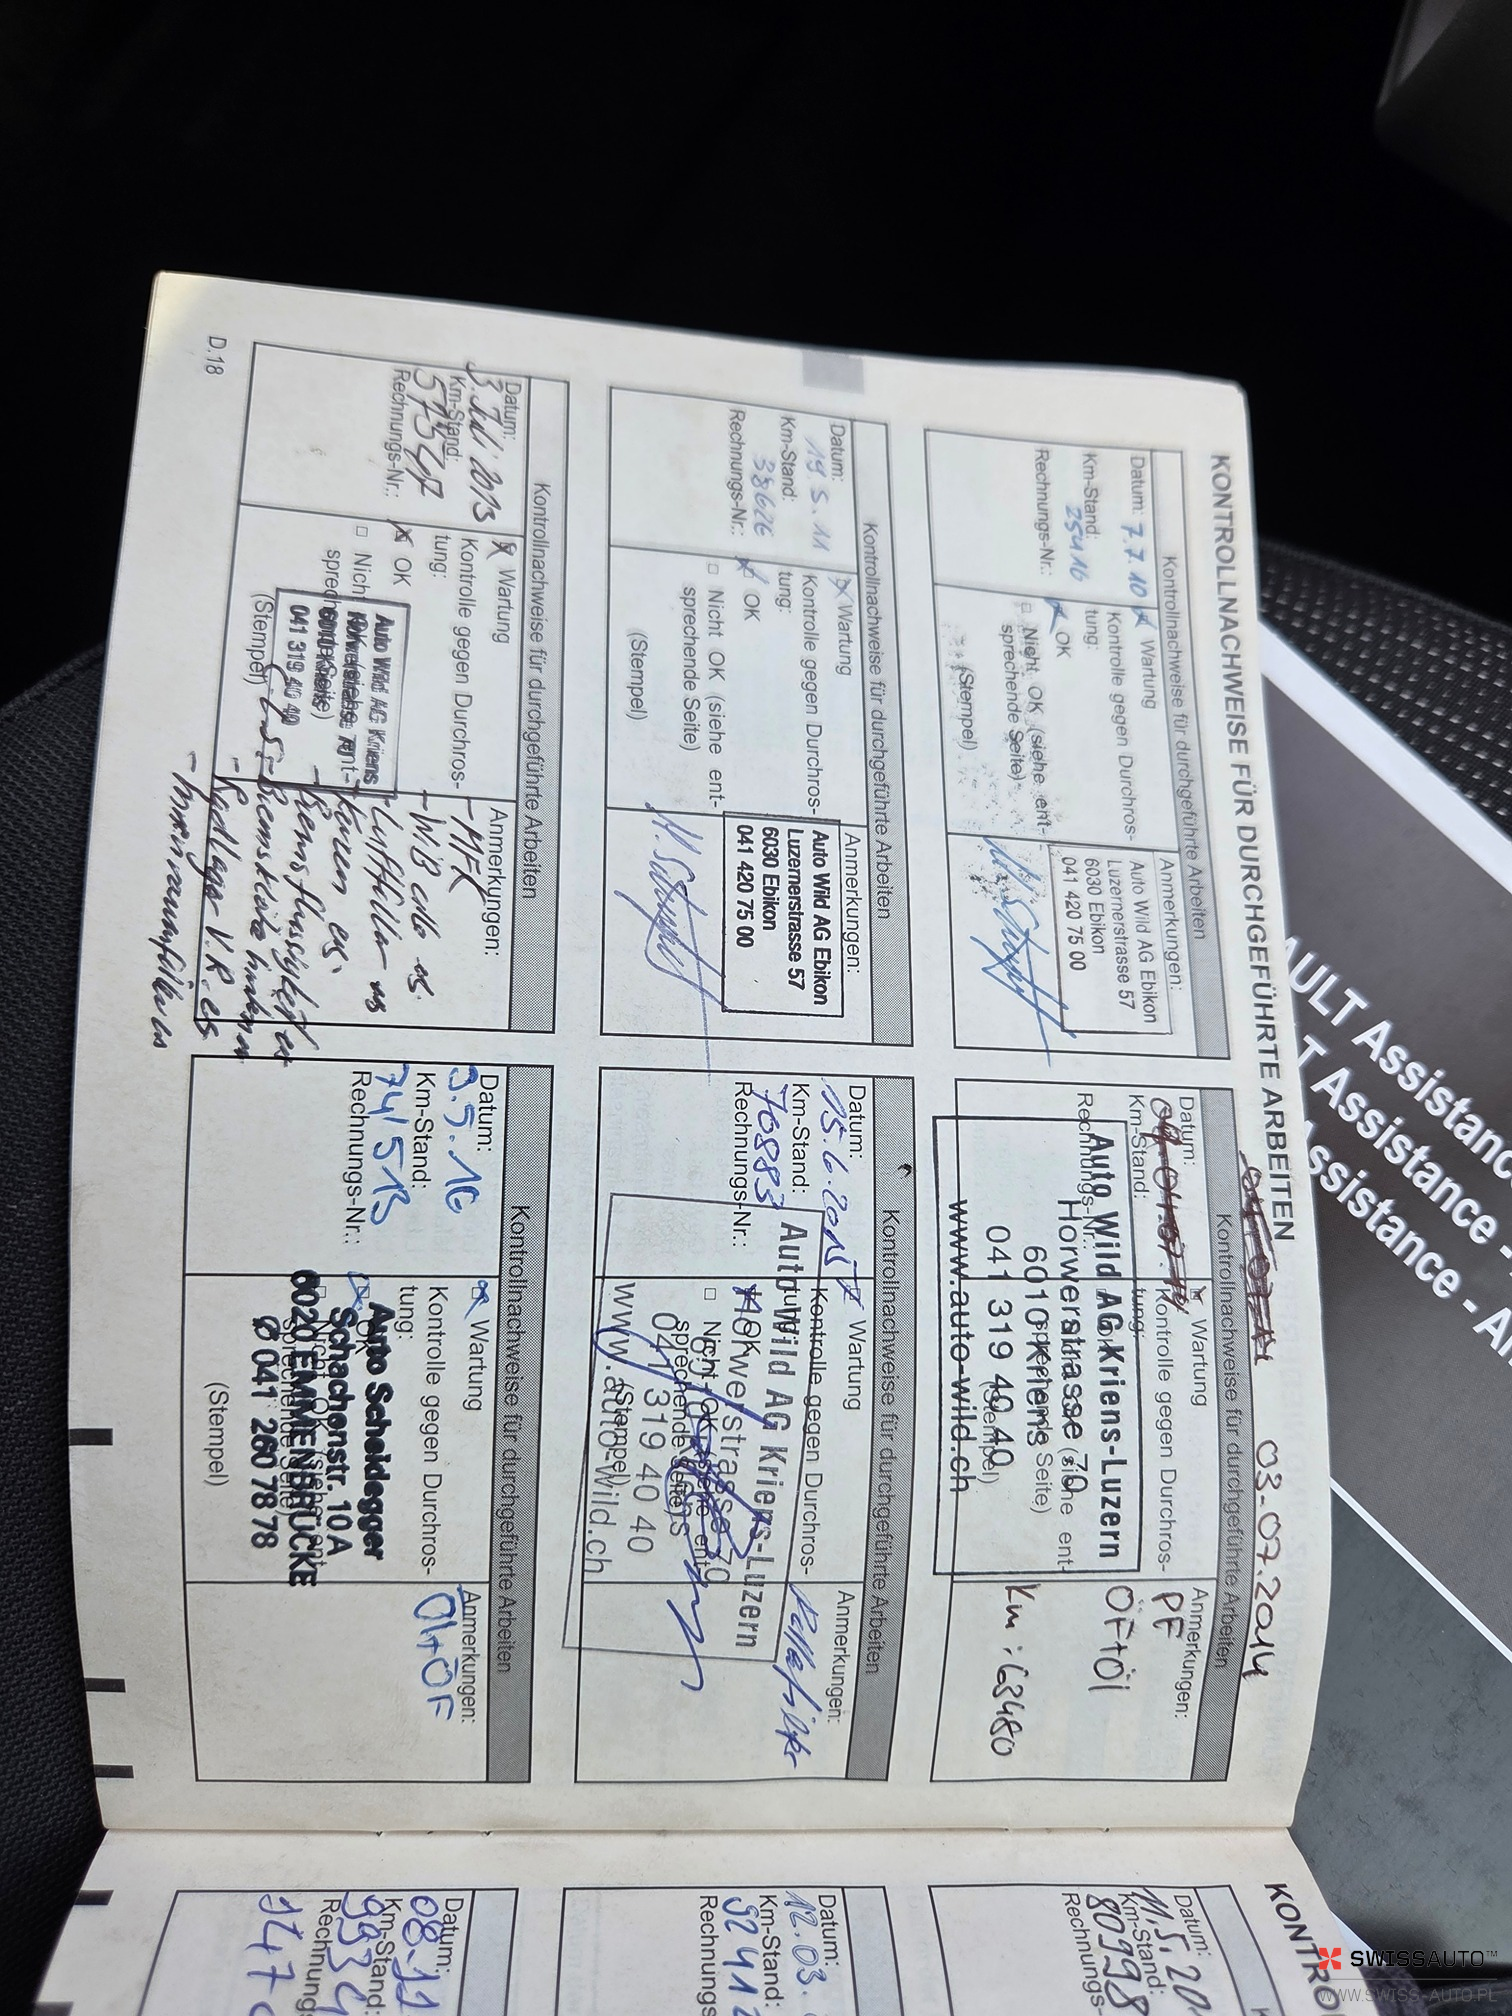 KONTROLLNACHWEISE FÜR DURCHGEFÜHRTE ARBEITEN
Kontrollnachweise für durchgeführte Arbeiten
Datum: 7.7.10
Km-Stand:
25416
Rechnungs-Nr.:
Wartung
Kontrolle gegen Durchros-
tung:
OK
□ Nicht OK (siehe ent-
sprechende Seite)
(Stempel)
Anmerkungen:
Auto Wild AG Ebikon
Luzernerstrasse 57
6030 Ebikon
041 420 75 00
Kontrollnachweise für durchgeführte Arbeiten
Datum:
19.5.11
Km-Stand:
38626
Rechnungs-Nr.:
Wartung
Kontrolle gegen Durchros-
tung:
OK
□ Nicht OK (siehe ent-
sprechende Seite)
(Stempel)
Anmerkungen:
Auto Wild AG Ebikon
Luzernerstrasse 57
6030 Ebikon
041 420 75 00
Kontrollnachweise für durchgeführte Arbeiten
Datum:
3. Juli 2013
Km-Stand:
Rechnungs-Nr.:
Wartung
Kontrolle gegen Durchros-
tung:
OK
□ Nicht
(Stempel)
Auto Wild AG Kriens
041 319 40 40
Anmerkungen:
- MFK
- Luftfilter
- Bremsflüssigkeit
- Radlager V.R.
- Innenraumfilter
D.18
03-07.2014
Kontrollnachweise für durchgeführte Arbeiten
Datum:
Km-Stand:
Rechnungs-Nr.:
Wartung
Kontrolle gegen Durchros-
tung:
Auto Wild AG Kriens-Luzern
Horwerstrasse 70
6010 Kriens
041 319 40 40
www.auto-wild.ch
Anmerkungen:
PF
ÖF+Öl
Km: 63480
Kontrollnachweise für durchgeführte Arbeiten
Datum:
15.6.2015
Km-Stand:
70883
Rechnungs-Nr.:
Wartung
Kontrolle gegen Durchros-
tung:
OK
□ Nicht OK
sprechende Seite)
(Stempel)
Auto Wild AG Kriens-Luzern
Horwerstrasse 70
041 319 40 40
www.auto-wild.ch
Anmerkungen:
Pollenfilter
Kontrollnachweise für durchgeführte Arbeiten
Datum:
3.5.16
Km-Stand:
74513
Rechnungs-Nr.:
Wartung
Kontrolle gegen Durchros-
tung:
Auto Scheidegger
Schachenstr. 10A
6020 EMMENBRÜCKE
✆ 041 260 78 78
(Stempel)
Anmerkungen:
Öl+ÖF
KONTRO
Datum:
11.5.20
Km-Stand:
80998
Rechnungs-
Datum:
12.03.
Km-Stand:
Rechnungs
Datum:
08.11
Km-Stand:
Rechnungs
AULT Assistance
T Assistance -
Assistance - A
SWISSAUTO™
WWW.SWISS-AUTO.PL